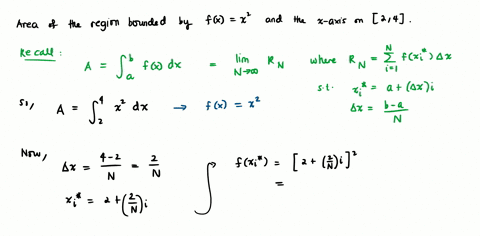 Area of the region bounded by f(x) = x² and the x-axis on [2,4].
Recall: A = ∫_a^b f(x) dx = lim_{N→∞} R_N where R_N = ∑_{i=1}^N f(x_i*) Δx
s.t. x_i* = a + (Δx)i
Δx = (b-a)/N
So, A = ∫_2^4 x² dx → f(x) = x²
Now, Δx = (4-2)/N = 2/N
x_i* = 2 + (2/N)i
f(x_i*) = [2 + (2/N)i]²
=